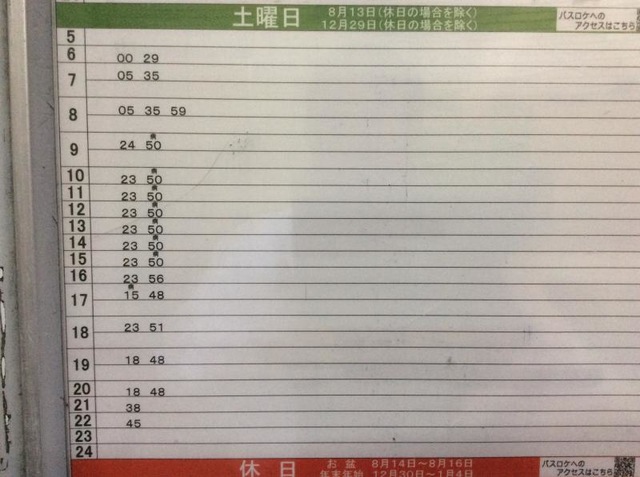 土曜日 8月13日(休日の場合を除く)
12月29日(休日の場合を除く)
バスロケへの
アクセスはこちら
5
6 00 29
7 05 35
8 05 35 59
9 24 50
10 23 50
11 23 50
12 23 50
13 23 50
14 23 50
15 23 50
16 23 56
17 15 48
18 23 51
19 18 48
20 18 48
21 38
22 45
23
24
休日 お盆 8月14日〜8月16日
年末年始 12月30日〜1月4日
バスロケへの
アクセスはこちら